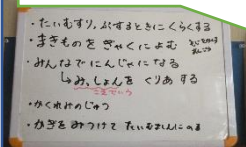 ・たいむすりっぷするときにくらくする
・まきものを ぎゃくによむ
・みんなでにんじゃになる
↳みっしょんを くりあする
・かくれみのじゅつ
・かぎを みつけて たいむましんにのる